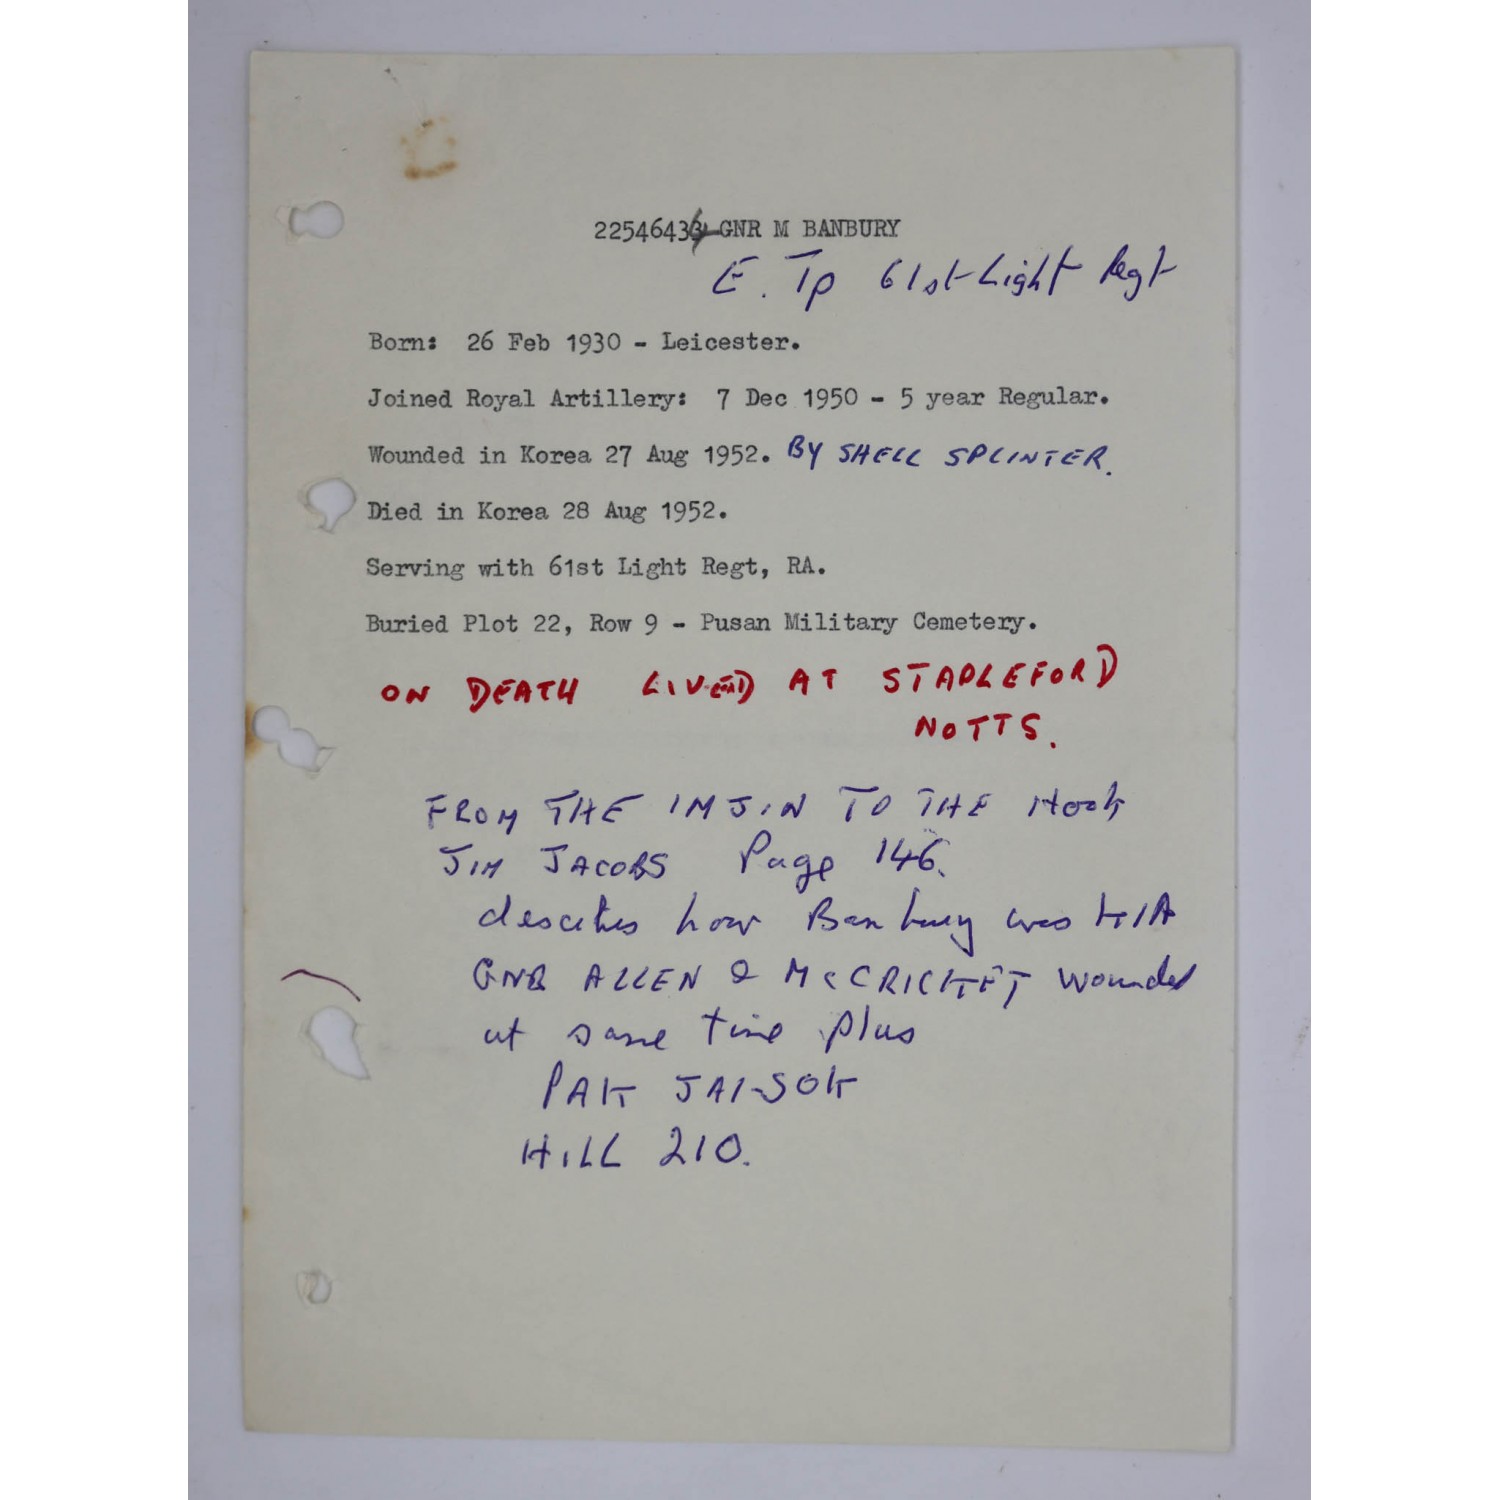 GNR M BANBURY
E. Tp 61st Light Regt
Born: 26 Feb 1930 - Leicester.
Joined Royal Artillery: 7 Dec 1950 - 5 year Regular.
Wounded in Korea 27 Aug 1952. BY SHELL SPLINTER.
Died in Korea 28 Aug 1952.
Serving with 61st Light Regt, RA.
Buried Plot 22, Row 9 - Pusan Military Cemetery.
ON DEATH LIVED AT STAPLEFORD
NOTTS.
FROM THE IMJIN TO THE HOOK
JIM JACOBS Page 146.
describes how Banbury was KIA
GNR ALLEN & McCRICKET wounded
at same time plus
PAK JAI-SOK
HILL 210.